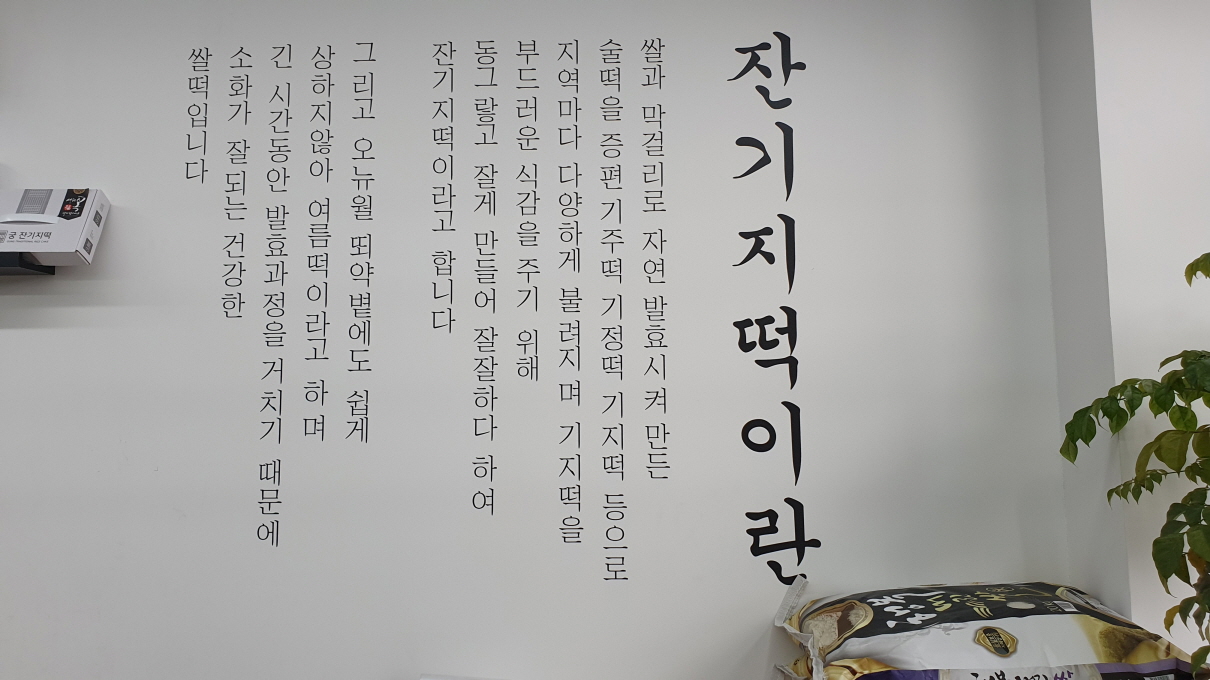 잔기지떡이란
쌀과 막걸리로 자연 발효시켜 만든
술떡을 증편 기주떡 기정떡 기지떡 등으로
지역마다 다양하게 불려지며 기지떡을
부드러운 식감을 주기 위해
동그랗고 잘게 만들어 잘잘하다 하여
잔기지떡이라고 합니다
그리고 오뉴월 뙤약볕에도 쉽게
상하지않아 여름떡이라고 하며
긴 시간동안 발효과정을 거치기 때문에
소화가 잘되는 건강한
쌀떡입니다
궁 잔기지떡